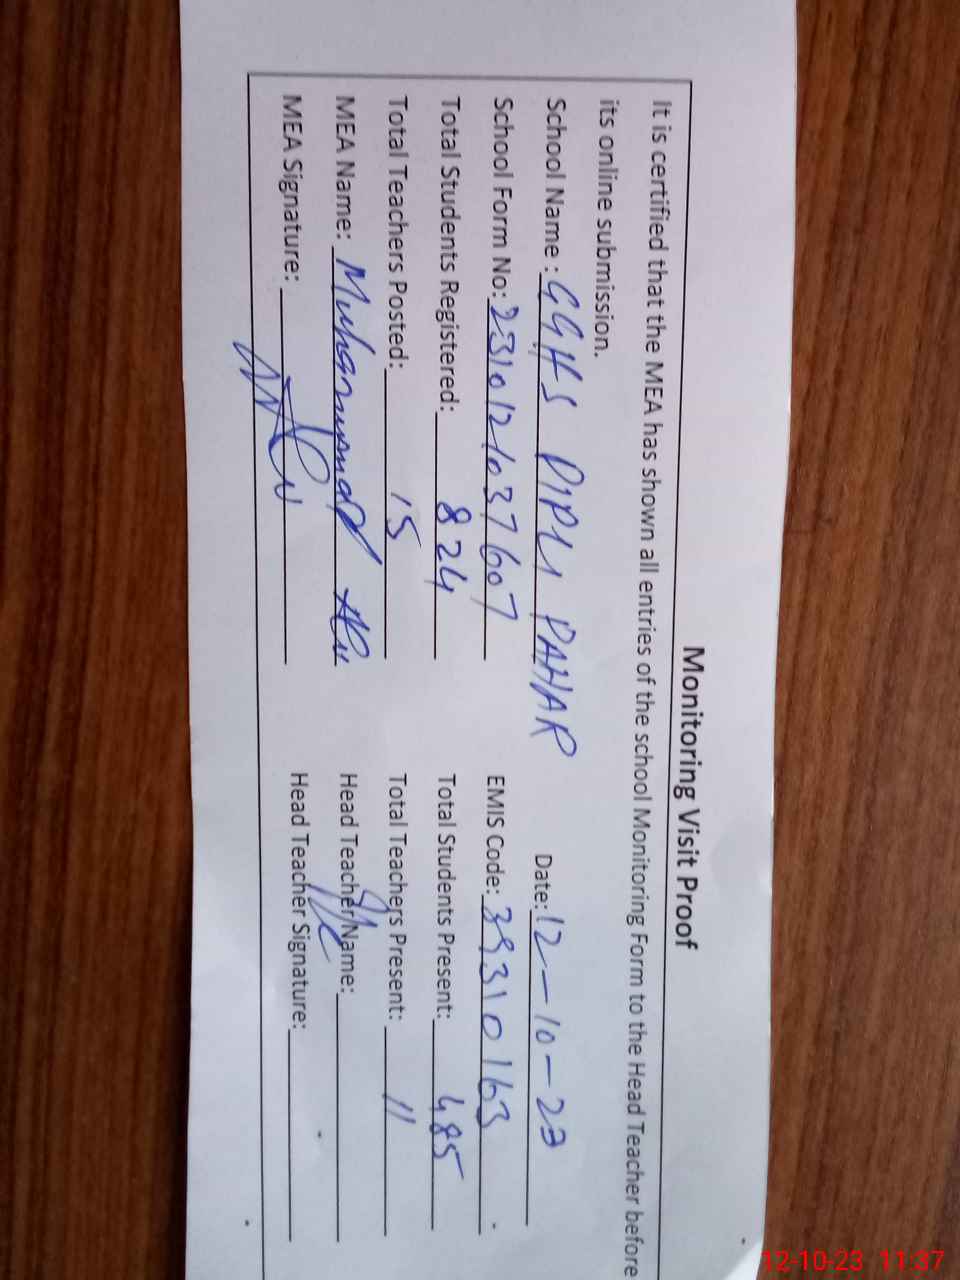 Monitoring Visit Proof
It is certified that the MEA has shown all entries of the school Monitoring Form to the Head Teacher before
its online submission.
School Name : GGHS PIPLI PAHAR Date: 12-10-23
School Form No: 2310121037607 EMIS Code: 39310163
Total Students Registered: 824 Total Students Present: 485
Total Teachers Posted: 15 Total Teachers Present: 11
MEA Name: Muhammad Ali Head Teacher Name:
MEA Signature: Head Teacher Signature:
12-10-23 11:37